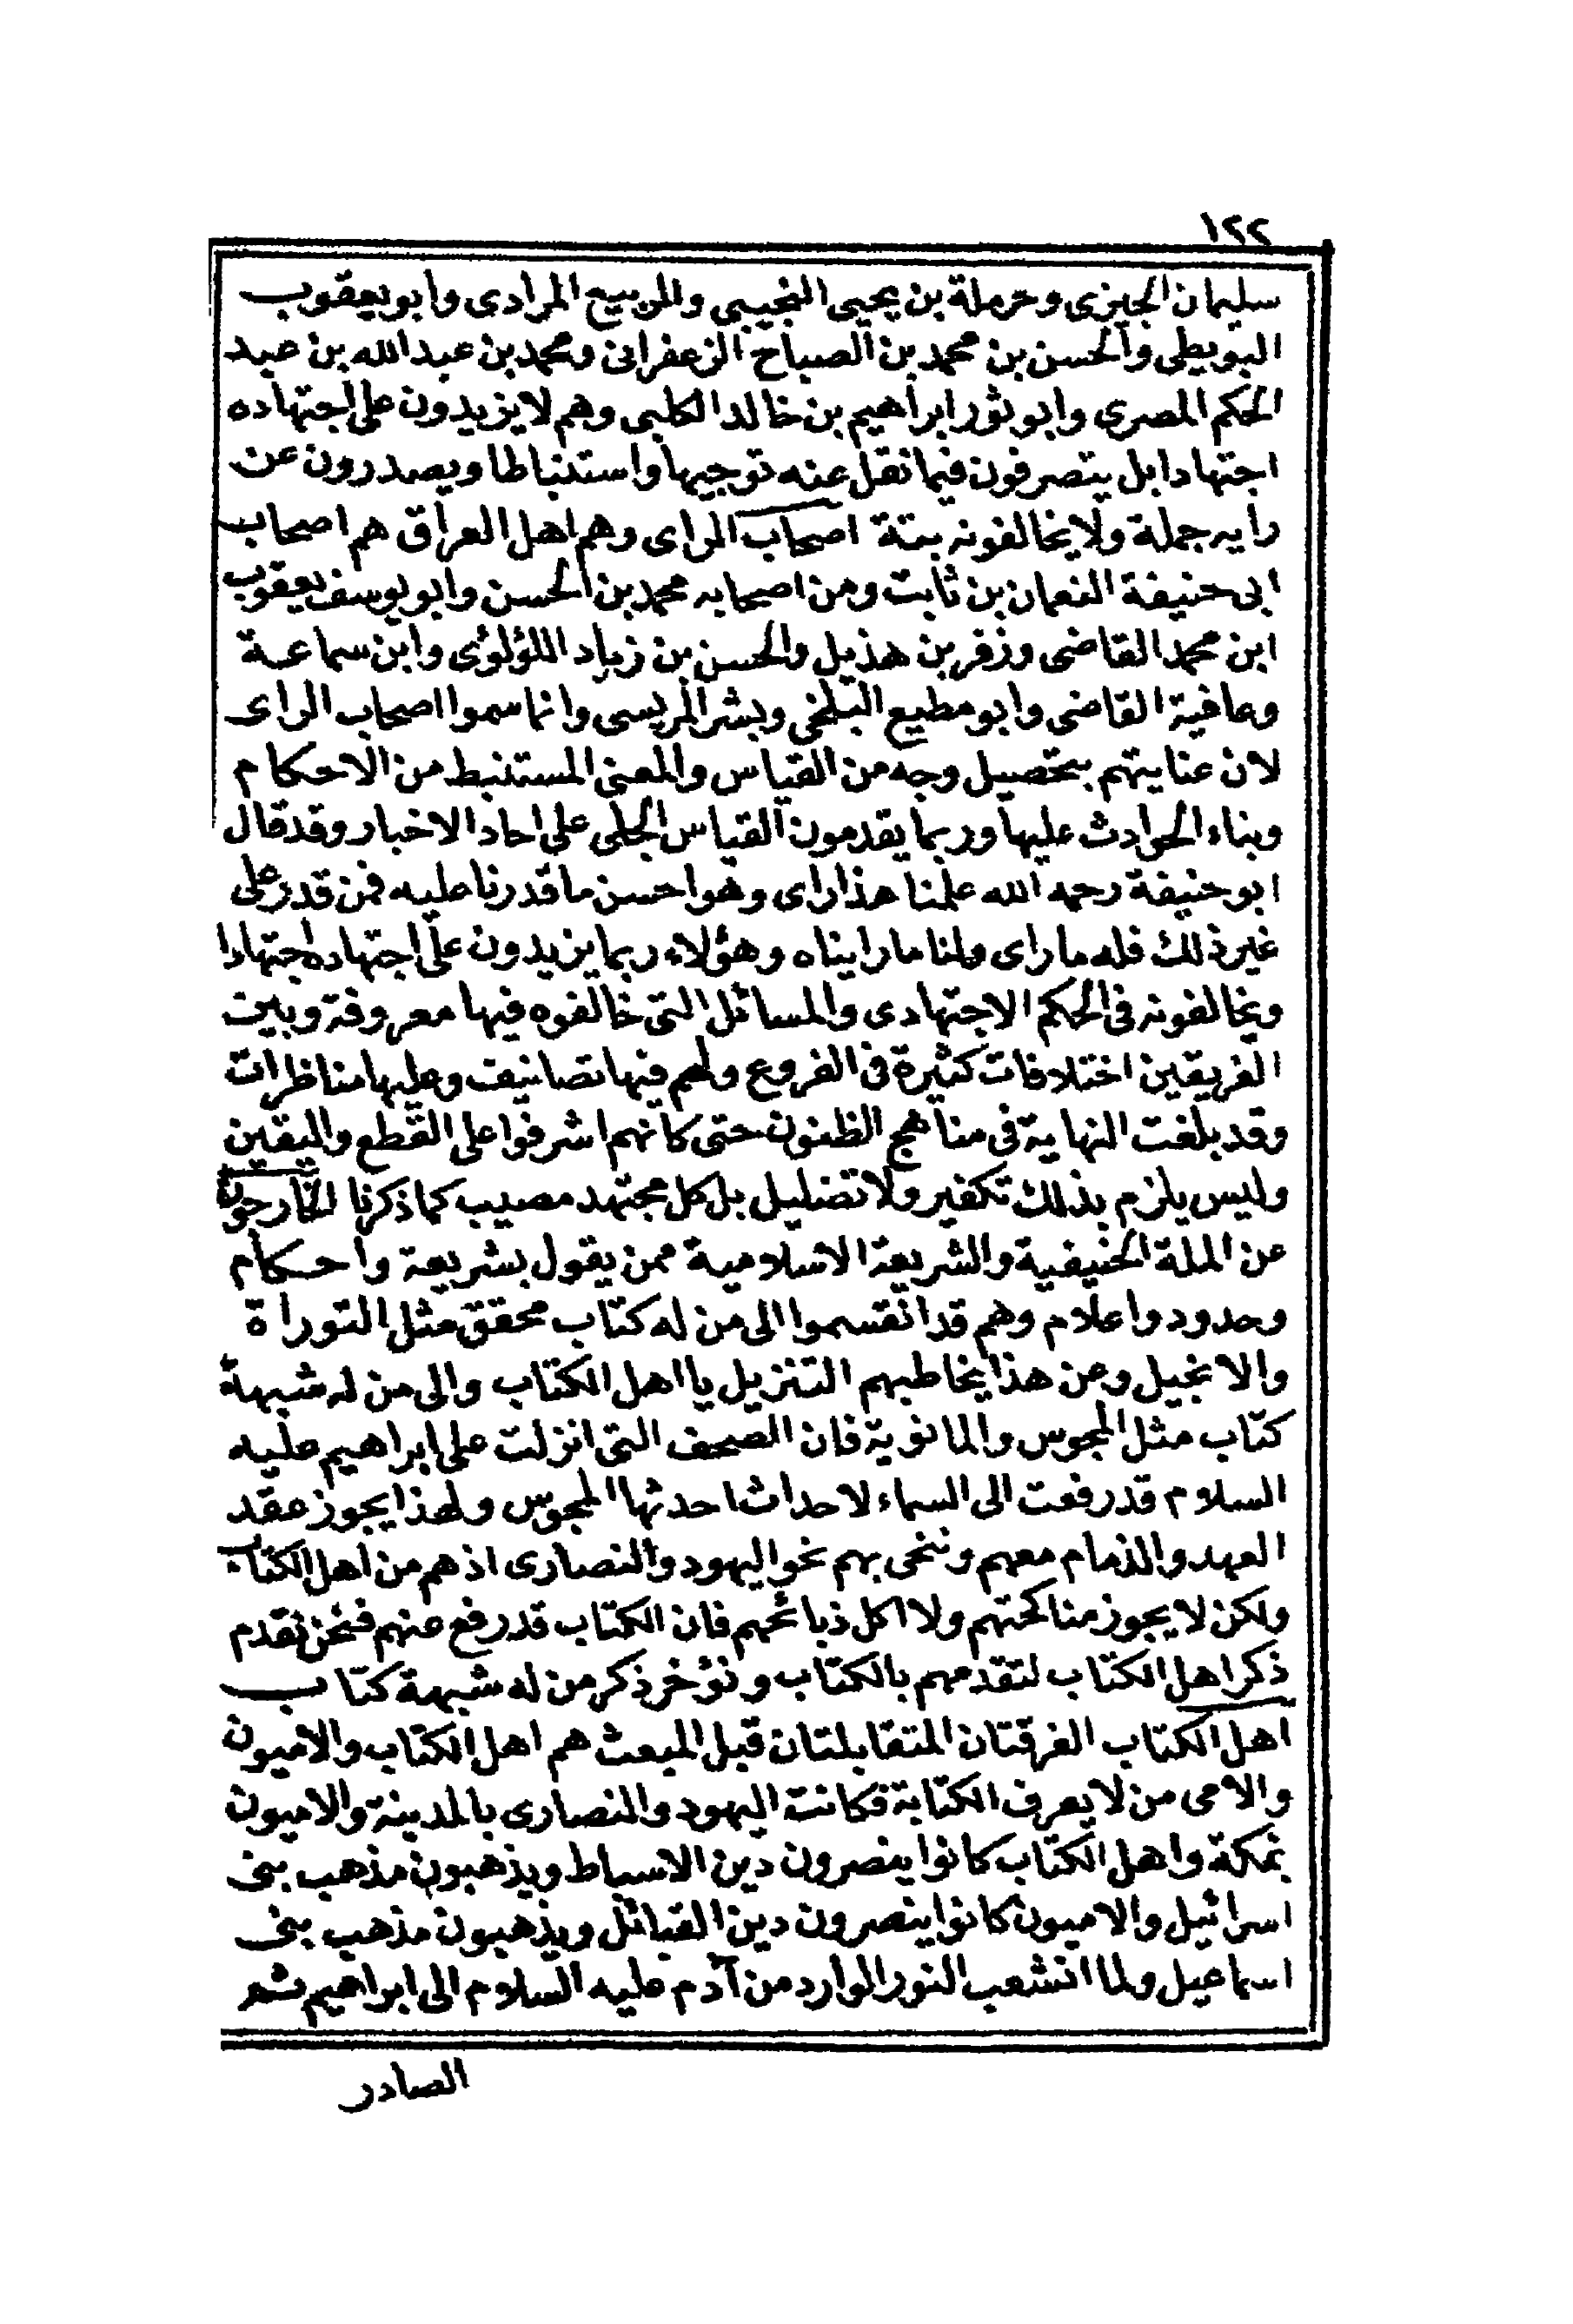 ١٢٢
سليمان الجيزى وحرملة بن يحيى التجيبي والربيع المرادى وابو يعقوب
البويطى والحسن بن محمد بن الصباح الزعفرانى ومحمد بن عبدالله بن عبد
الحكم المصرى وابو ثور ابراهيم بن خالد الكلبى وهم لا يزيدون على اجتهاده
اجتهادا بل يتصرفون فيما نقل عنه توجيها واستنباطا ويصدرون عن
رأيه جملة ولا يخالفونه بتة اصحاب الراى وهم اهل العراق هم اصحاب
ابى حنيفة النعمان بن ثابت ومن اصحابه محمد بن الحسن وابو يوسف يعقوب
ابن محمد القاضى وزفر بن هذيل والحسن بن زياد اللؤلؤى وابن سماعة
وعافية القاضى وابو مطيع البلخى وبشر المريسى وانما سموا اصحاب الراى
لان عنايتهم بتحصيل وجه من القياس والمعنى المستنبط من الاحكام
وبناء الحوادث عليها وربما يقدمون القياس الجلى على احاد الاخبار وقد قال
ابو حنيفة رحمه الله علمنا هذا راى وهو احسن ما قدرنا عليه فمن قدر على
غير ذلك فله ما راى ولنا ما رايناه وهؤلاء ربما يزيدون على اجتهاده اجتهادا
ويخالفونه فى الحكم الاجتهادى والمسائل التى خالفوه فيها معروفة وبين
الفريقين اختلافات كثيرة فى الفروع ولهم فيها تصانيف وعليها مناظرات
وقد بلغت النهاية فى مناهج الظنون حتى كانهم اشرفوا على القطع واليقين
وليس يلزم بذلك تكفير ولا تضليل بل كل مجتهد مصيب كما ذكرنا الخارجون
عن الملة الحنيفية والشريعة الاسلامية ممن يقول بشريعة واحكام
وحدود واعلام وهم قد انقسموا الى من له كتاب محقق مثل التوراة
والانجيل وعن هذا يخاطبهم التنزيل يا اهل الكتاب والى من له شبهة
كتاب مثل المجوس والمانوية فان الصحف التى انزلت على ابراهيم عليه
السلام قد رفعت الى السماء لاحداث احدثها المجوس ولهذا يجوز عقد
العهد والذمام معهم وننحى بهم نحو اليهود والنصارى اذ هم من اهل الكتاب
ولكن لا يجوز مناكحتهم ولا اكل ذبائحهم فان الكتاب قد رفع عنهم فنحن نقدم
ذكر اهل الكتاب لتقدمهم بالكتاب ونؤخر ذكر من له شبهة كتاب
اهل الكتاب الفرقتان المتقابلتان قبل المبعث هم اهل الكتاب والاميون
والامى من لا يعرف الكتابة فكانت اليهود والنصارى بالمدينة والاميون
بمكة واهل الكتاب كانوا ينصرون دين الاسباط ويذهبون مذهب بنى
اسرائيل والاميون كانوا ينصرون دين القبائل ويذهبون مذهب بنى
اسماعيل ولما انشعب النور الوارد من آدم عليه السلام الى ابراهيم ثم
الصادر